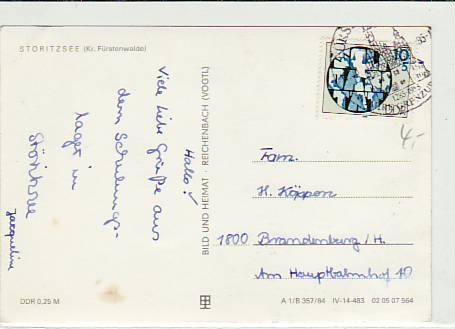 STORITZSEE (Kr. Fürstenwalde)
Hallo!
Viele liebe Grüße aus
dem Schulungs-
lager in
Störitzsee
Jacqueline
BILD UND HEIMAT · REICHENBACH (VOGTL)
10
5
4,-
Fam.
H. Köppen
1800 Brandenburg/H.
Am Hauptbahnhof 10
DDR 0,25 M
A 1/B 357/84 IV-14-483 02 05 07 564